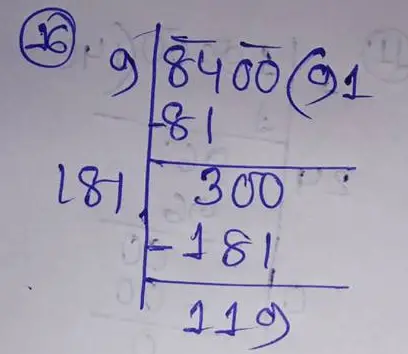 16. 9 8400 (91
-81
181 300
-181
119